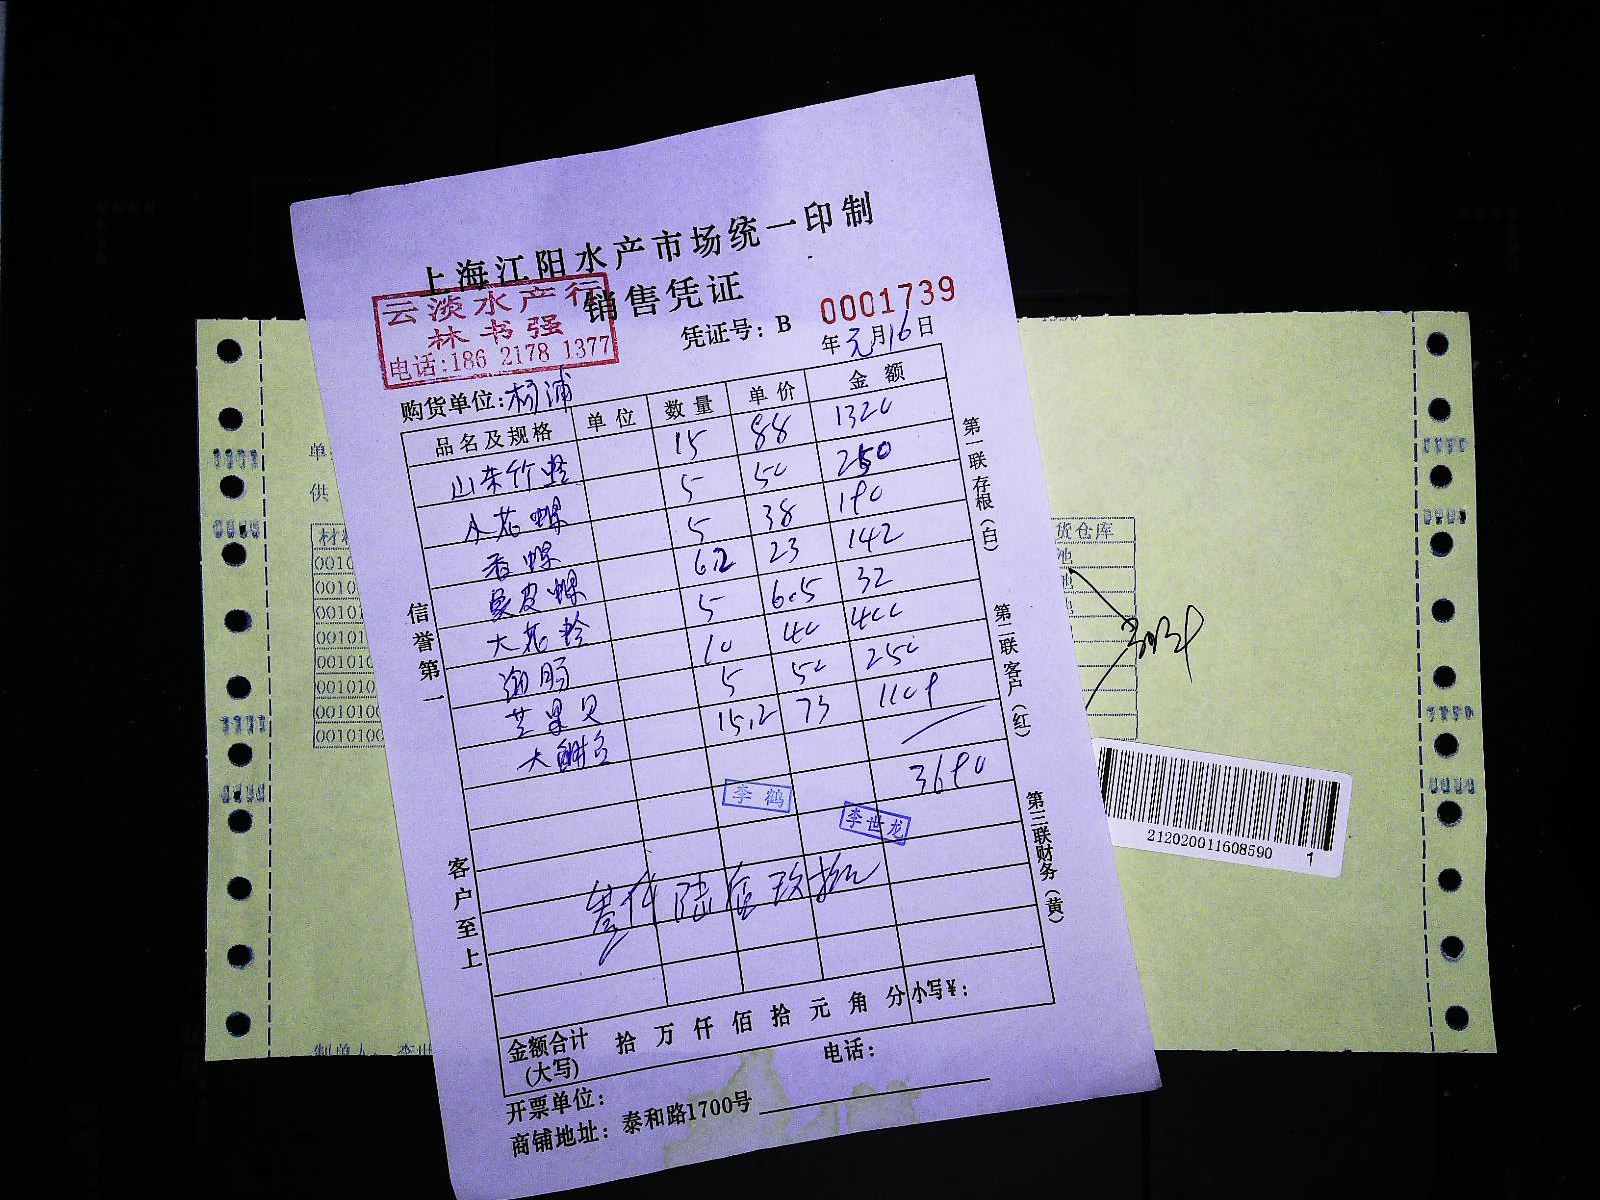 上海江阳水产市场统一印制
销售凭证
云淡水产行
林书强
电话:186 2178 1377
凭证号: B 0001739
年元月16日
购货单位:杨浦
品名及规格 单位 数量 单价 金额
山东竹蛏 15 88 1320
小花螺 5 50 250
香螺 5 38 190
象皮螺 6.2 23 142
大花蛤 5 6.5 32
海肠 10 40 400
芒果贝 5 50 250
大鲍 15.2 73 1109
3690
李鹤
李世龙
叁仟陆佰玖拾元
金额合计
(大写)
拾 万 仟 佰 拾 元 角 分 小写¥:
开票单位: 电话:
商铺地址: 泰和路1700号
信誉第一
客户至上
第一联存根(白)
第二联客户(红)
第三联财务(黄)
单
供
材
0010
0010
00101
00101
001010
001010
001010
001010
货仓库
池
制单人: 李世
212020011608590 1